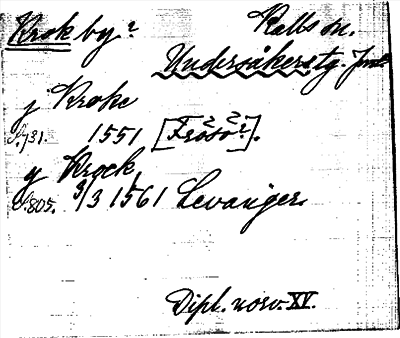 Krok by? Kalls sn.
Undersåkers tg. Jmtl.
j Kroke
S. 731. 1551 [Frösö?].
y Krock
S. 805. 3/3 1561 Levanger.
Dipl. norv. XV.